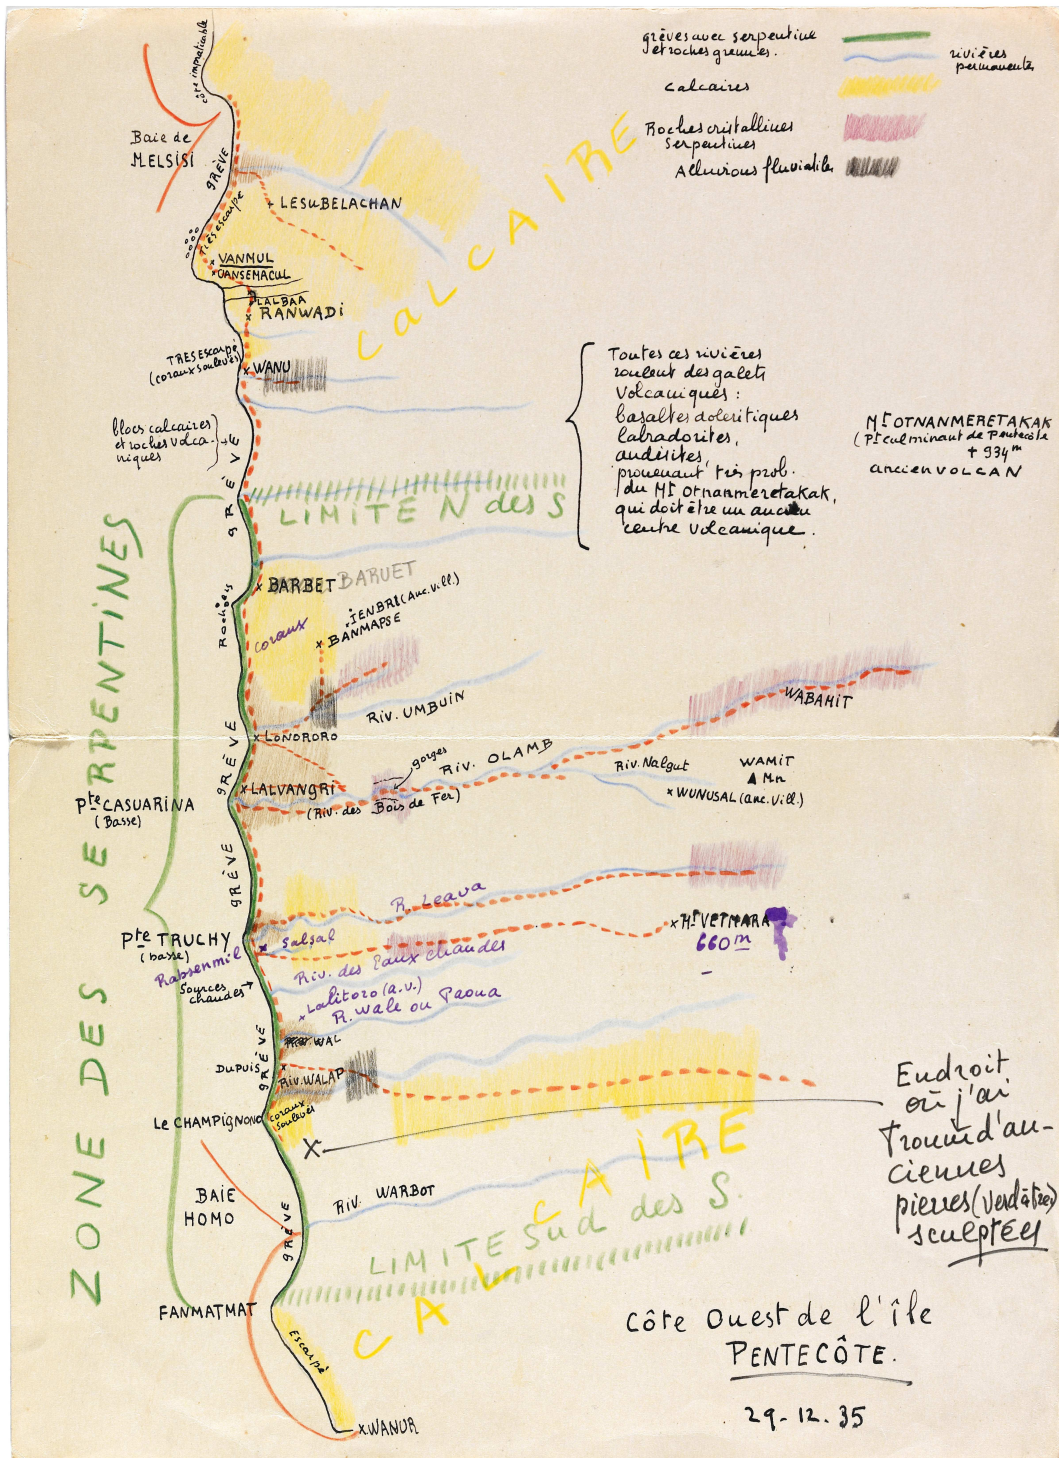 grèves avec serpentine
et roches grenues.
rivières
permanentes
calcaires
Roches cristallines
Serpentines
Alluvions fluviatiles
côte impraticable
Baie de
MELSISI
GRÈVE
+ LESUBELACHAN
Très escarpé
CALCAIRE
VANMUL
VANSEMACUL
LALBAA
RANWADI
TRES Escarpé
(coraux soulevés)
x WANU
blocs calcaires
et roches volca-
niques
GRÈVE
Toutes ces rivières
roulent des galets
Volcaniques :
basaltes doleritiques
labradorites,
andésites,
provenant très prob.
du Mt Otnanmeretakak,
qui doit être un ancien
centre volcanique.
Mt OTNANMERETAKAK
(Pt culminant de Pentecôte
+ 934m
ancien VOLCAN
LIMITE N des S
ZONE DES SERPENTINES
x BARBET BARUET
Rochers
coraux
IENBRI (Anc. Vill.)
x BANMAPSE
Riv. UMBUIN
x LONORORO
GRÈVE
x LALVANGRI
gorges
Riv. OLAMB
(Riv. des Bois de Fer)
WABAMIT
Riv. Nalgut
WAMIT
▲ Mn
x WUNUSAL (anc. Vill.)
Pte CASUARINA
(Basse)
GRÈVE
R. Leava
Pte TRUCHY
(basse)
Salsal
Rabsenmil
x Mt VETMARA
660m
Riv. des Eaux chaudes
Sources
chaudes
x Lalitoro (a.v.)
R. Wale ou Paoua
WAL
GRÈVE
DUPUIS
Riv. WALAP
Le CHAMPIGNON
coraux
soulevés
X
Endroit
où j'ai
trouvé d'an-
ciennes
pierres (verdâtres)
sculptées
BAIE
HOMO
Riv. WARBOT
GRÈVE
CALCAIRE
LIMITE Sud des S.
FANMATMAT
Escarpé
x WANUR
Côte Ouest de l'île
PENTECÔTE.
29-12.35